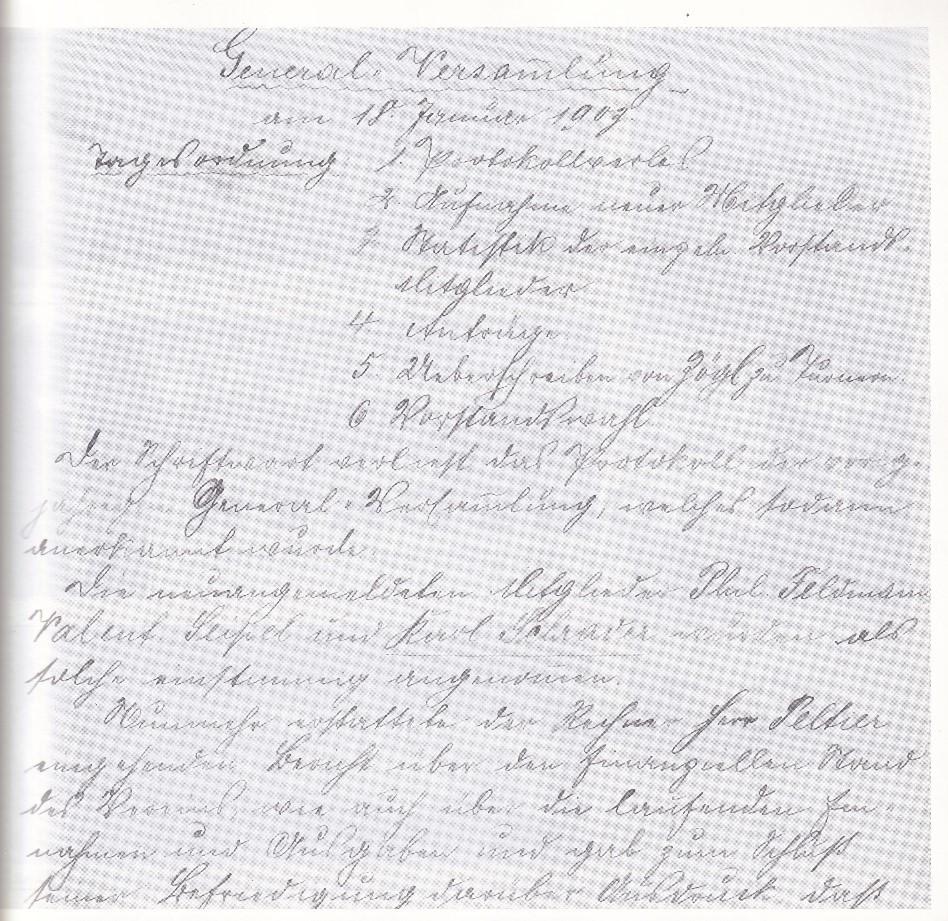 General-Versamlung
am 18. Januar 1909
Tagesordnung 1 Protokollverles
2 Aufnahme neuer Mitglieder
3 Statistik der einzeln. Vorstands-
Mitglieder
4 Anträge
5 Ueberschreiben von Zögl. zu Turnern.
6 Vorstandswahl
Der Schriftwart verliest das Protokoll der vorig-
jährigen General-Versamlung, welches sodann
anerkannt wurde.
Die neuangemeldeten Mitglieder Phil. Feldmann
Valent. Seipel und Karl wurden als
solche einstimmig angenommen.
Nunmehr erstattete der Rechner Herr Peltier
eingehenden Bericht über den finanziellen Stand
des Vereins, wie auch über die laufenden Ein-
nahmen und Ausgaben und gab zum Schluß
seiner Befriedigung darüber Ausdruck daß